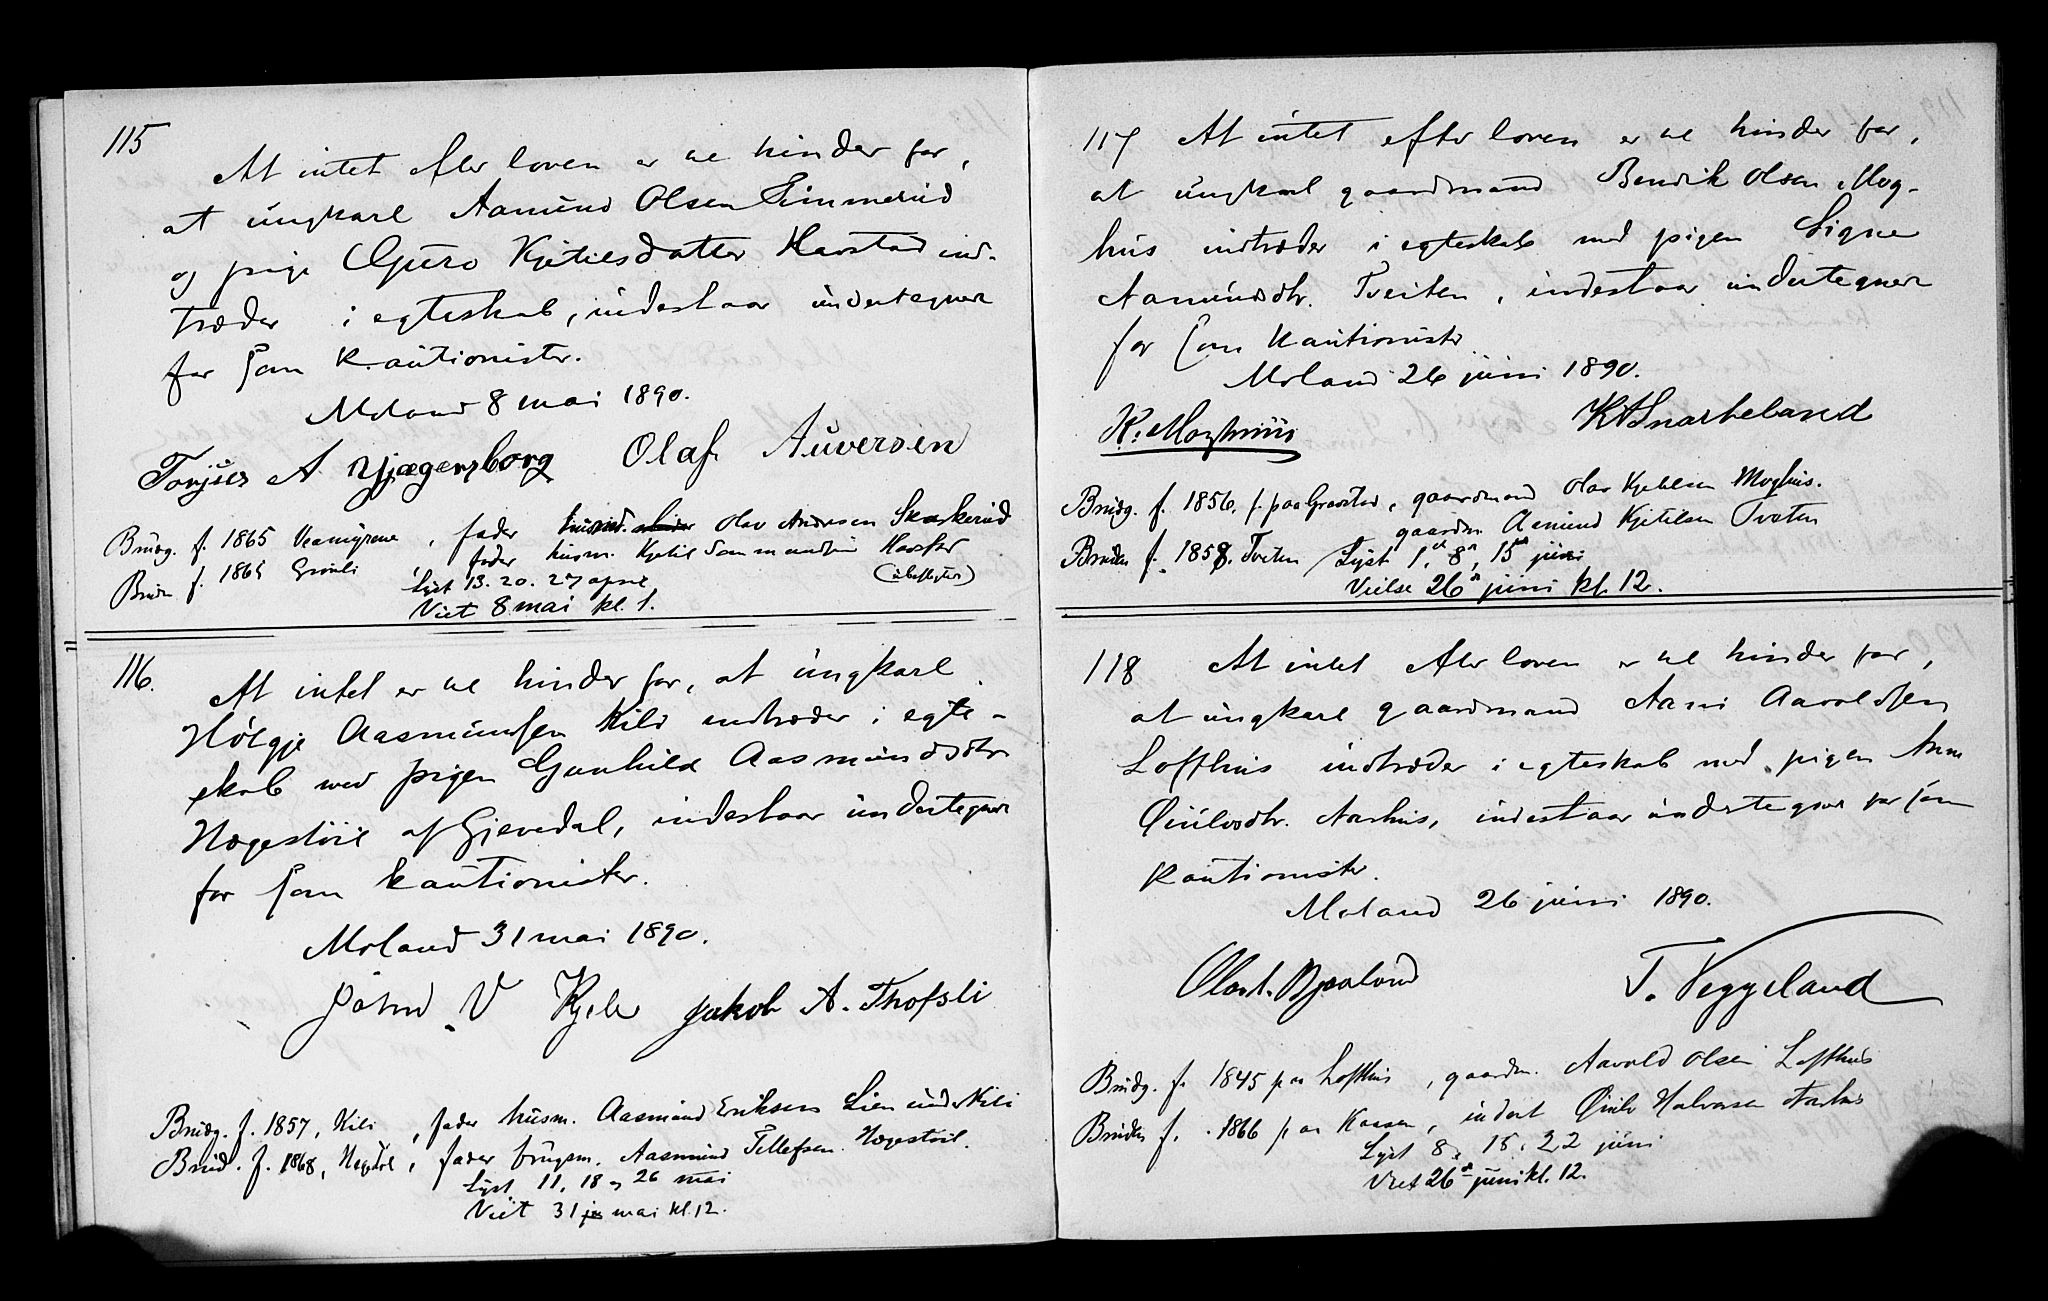 115
At intet efter loven er til hinder for,
at ungkarl Aamund Olsen Simmerud
og pige Guro Kjetilsdatter Havstad ind-
træder i egteskab, indestaar undertegnede
for som kautionister.
Moland 8 mai 1890.
Torjus A Hjægersborg Olaf Auversen
Brudg. f. 1865, fader husmd. Olav Andersen Skarkerud
Brud f. 1865 Gronli, fader husm. Kjetil
Lyst 13. 20. 27 april
Viet 8 mai kl. 1.
116.
At intet er til hinder for, at ungkarl
Hølgje Aasmundsen Kili indtræder i egte-
skab med pigen Gunhild Aasmundsdtr.
Hægestøil af Gjøvedal, indestaar undertegnede
for som kautionister.
Moland 31 mai 1890.
John V Jakob A. Thofsli
Brudg. f. 1857, Kili, fader husm. Aasmund Eriksen Lien under Kili
Brud. f. 1868, fader brugsm. Aasmund Tellefsen Hægestøil.
Lyst 11, 18 og 26 mai
Viet 31 mai kl. 12.
117 At intet efter loven er til hinder for,
at ungkarl gaardmand Bendik Olsen Mog-
hus indtræder i egteskab med pigen Signe
Aamundsdtr. Tveiten, indestaar undertegnede
for som kautionister
Moland 26 juni 1890.
K. Moghuus K Snarteland
Brudg. f. 1856, f. paa Gravstad, gaardmand Olav Kjetilsen Moghus.
gaardm. Aamund Kjetilsen Tveten
Bruden f. 1858. Tveten Lyst 1ste, 8de, 15de juni
Vielse 26de juni kl. 12.
118 At intet efter loven er til hinder for,
at ungkarl gaardmand Aani Aavoldsen
Lofthus indtræder i egteskab med pigen Anne
Øiulvsdtr. Aarhus, indestaar undertegnede for som
kautionister.
Moland 26 juni 1890.
Olav L. Bjaaland T. Veggeland
Brudg. f. 1845 paa Lofthus, gaardm. Aavold Olsen Lofthus
Bruden f. 1866 paa Kaasen, inderst Øiulv Halvorsen Aarhus
Lyst 8, 15, 22 juni
Viet 26de juni kl. 12.